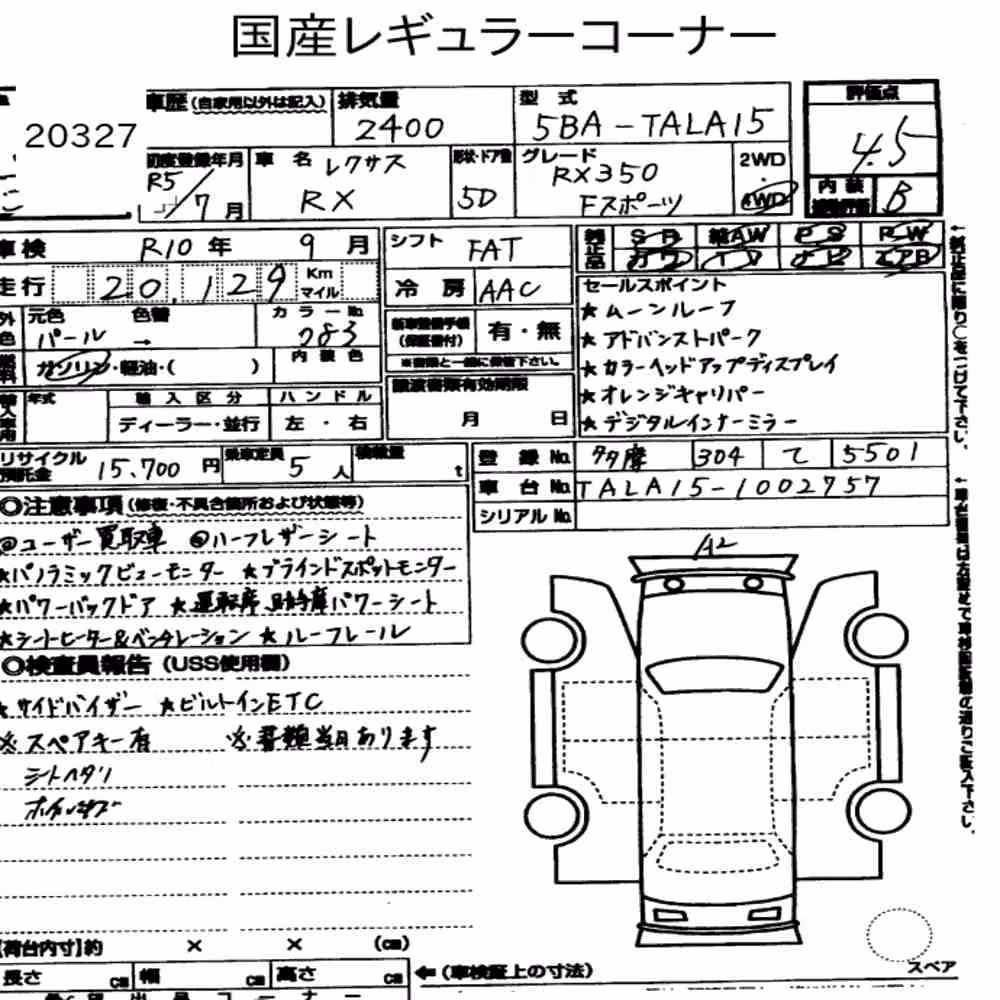 国産レギュラーコーナー
20327
車歴(自家用以外は記入)
排気量 2400
型式 5BA-TALA15
評価点 4.5
初度登録年月 R5/7月
車名 レクサス RX
形状・ドア数 5D
グレード RX350 Fスポーツ
2WD・4WD
内装 B
車検 R10年 9月
シフト FAT
純正品 SR 鍛AW PS PW
カワ TV ナビ エアB
走行 20,129 Km マイル
冷房 AAC
セールスポイント
★ムーンルーフ
★アドバンストパーク
★カラーヘッドアップディスプレイ
★オレンジキャリパー
★デジタルインナーミラー
元色 パール → 色替
カラーNo. 083
ガソリン・軽油・( )
内装色
新車整備手帳(保証書付) 有・無
※書類と一緒に保管下さい。
譲渡書類有効期限
月 日
年式
輸入区分 ディーラー・並行
ハンドル 左・右
リサイクル預託金 15,700円
乗車定員 5人
積載量 t
登録No. 多摩 304 て 5501
車台No. TALA15-1002757
シリアルNo.
◎注意事項(修復・不具合箇所および状態等)
@ユーザー買取車 @ハーフレザーシート
★パノラミックビューモニター ★ブラインドスポットモニター
★パワーバックドア ★運転席 助手席パワーシート
★シートヒーター&ベンチレーション ★ルーフレール
◎検査員報告(USS使用欄)
★サイドバイザー ★ビルトインETC
※スペアキー有 ※書類当日あります
シートヘタリ
A2
↑純正品に限り○をつけて下さい。
[荷台内寸]約 × × (cm)
長さ cm 幅 cm 高さ cm
←(車検証上の寸法)
スペア